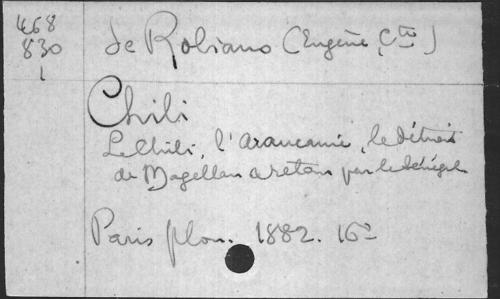 468
830
1
de Robiano (Eugène, Cte)
Chili
Le Chili, l'Araucanie, le détroit
de Magellan et retour par le Sénégal
Paris Plon. 1882. 16°